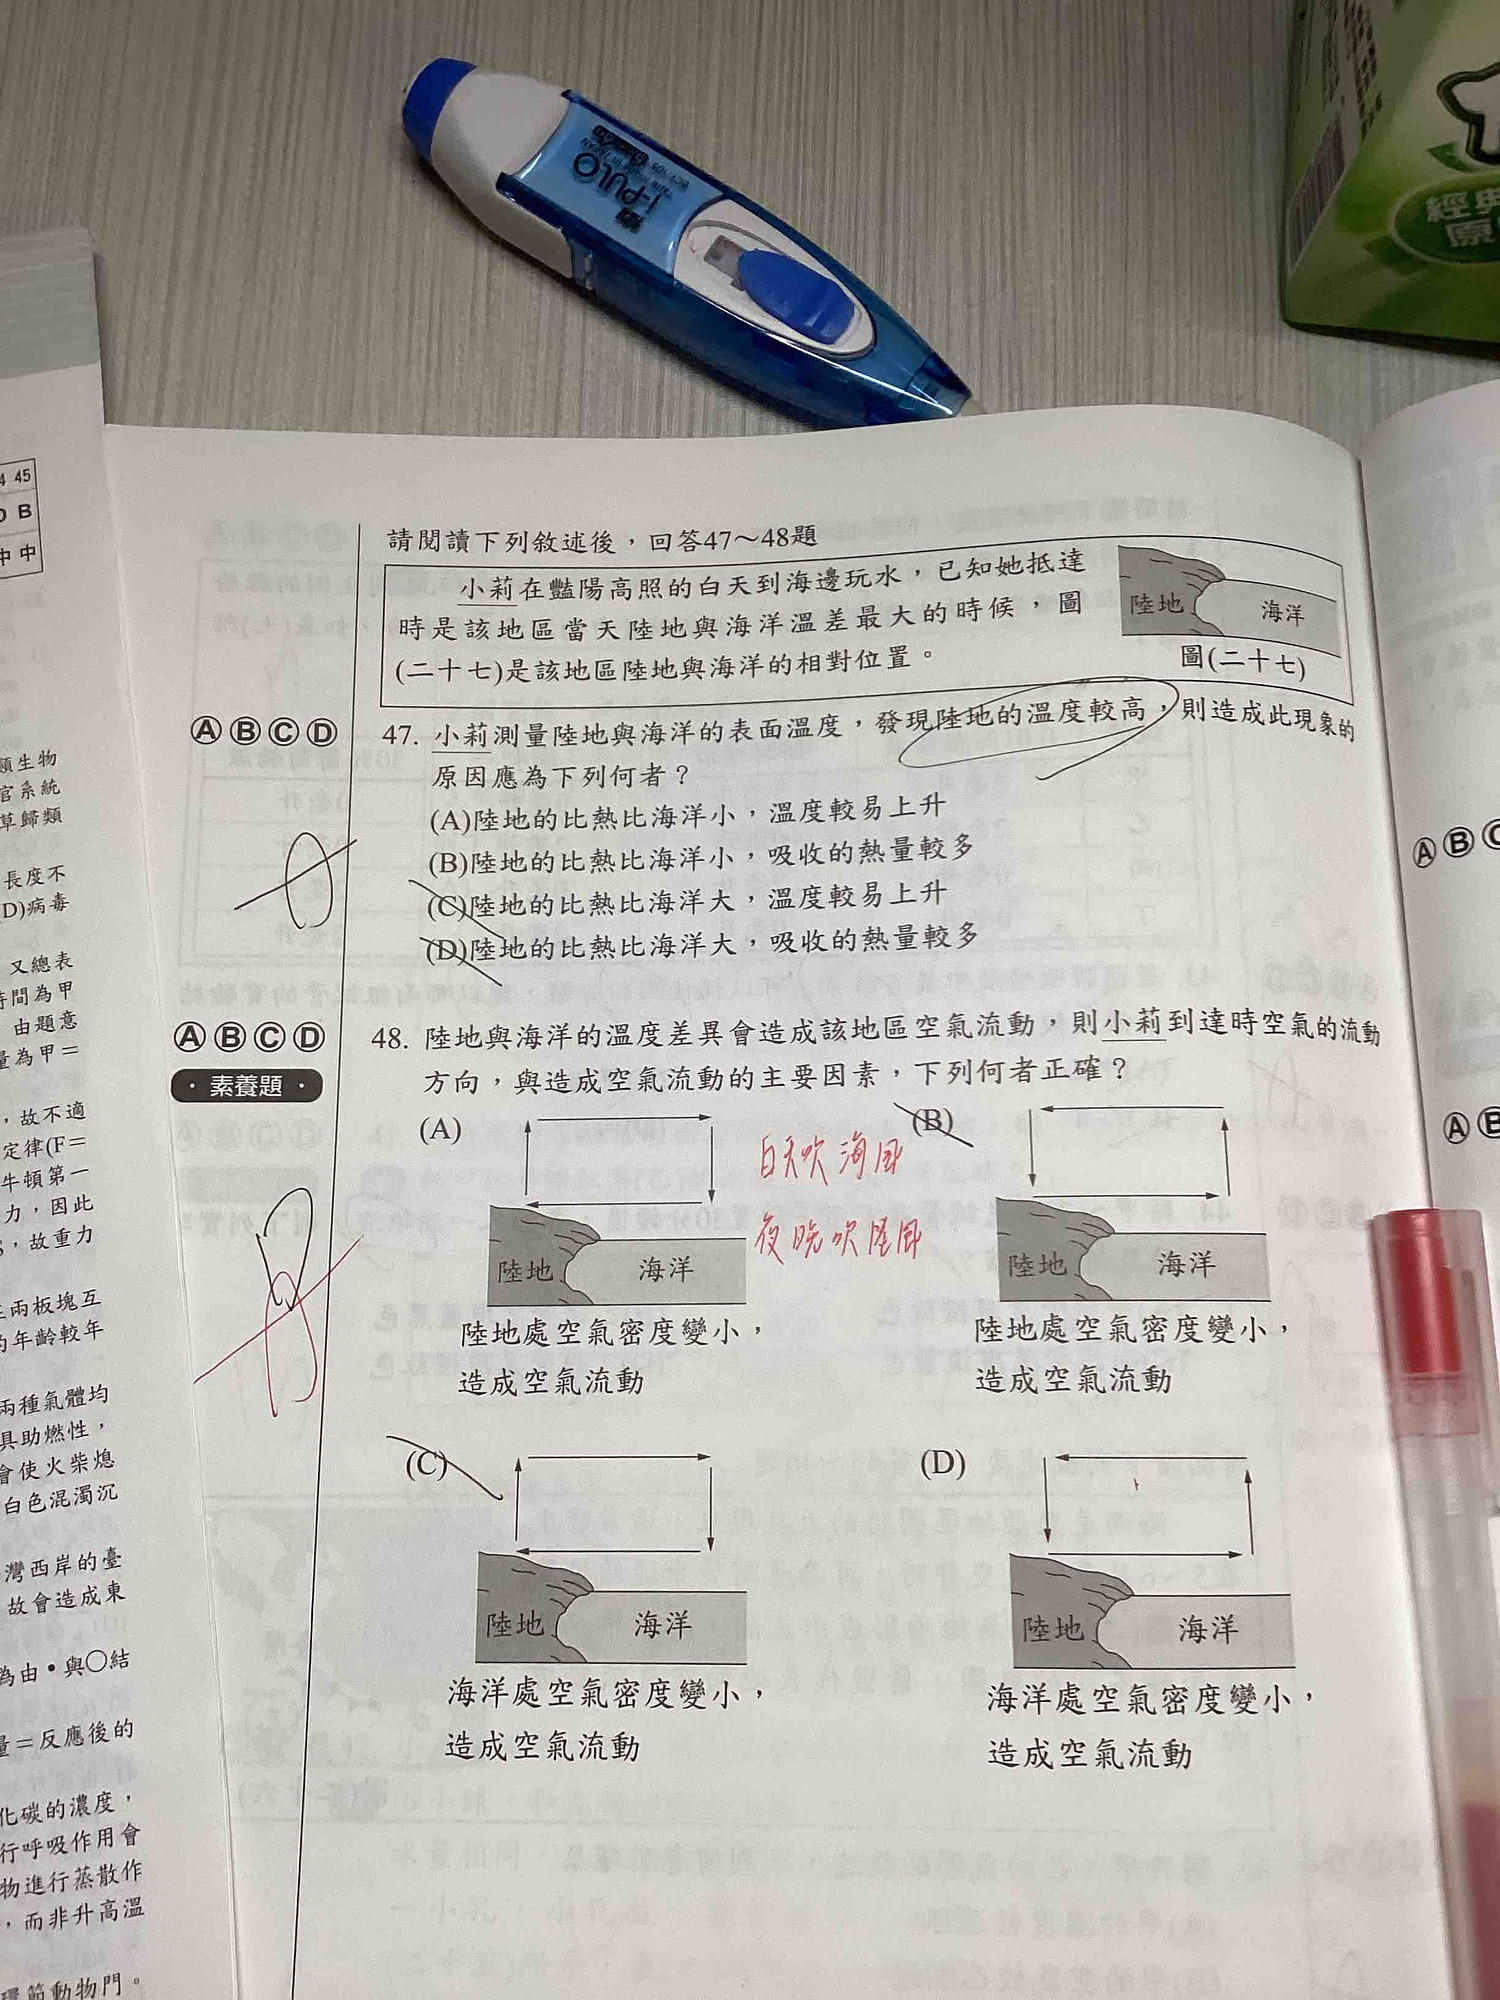 i-PULO
經典
原
4 45
D B
中 中
請閱讀下列敘述後，回答47～48題
小莉在豔陽高照的白天到海邊玩水，已知她抵達
時是該地區當天陸地與海洋溫差最大的時候，圖
(二十七)是該地區陸地與海洋的相對位置。
陸地 海洋
圖(二十七)
Ⓐ Ⓑ Ⓒ Ⓓ
47. 小莉測量陸地與海洋的表面溫度，發現陸地的溫度較高，則造成此現象的
原因應為下列何者？
(A)陸地的比熱比海洋小，溫度較易上升
(B)陸地的比熱比海洋小，吸收的熱量較多
(C)陸地的比熱比海洋大，溫度較易上升
(D)陸地的比熱比海洋大，吸收的熱量較多
Ⓐ Ⓑ Ⓒ Ⓓ
・素養題・
48. 陸地與海洋的溫度差異會造成該地區空氣流動，則小莉到達時空氣的流動
方向，與造成空氣流動的主要因素，下列何者正確？
(A)
陸地 海洋
陸地處空氣密度變小，
造成空氣流動
白天吹海風
夜晚吹陸風
(B)
陸地 海洋
陸地處空氣密度變小，
造成空氣流動
(C)
陸地 海洋
海洋處空氣密度變小，
造成空氣流動
(D)
陸地 海洋
海洋處空氣密度變小，
造成空氣流動
類生物
官系統
草歸類
長度不
D)病毒
又總表
時間為甲
由題意
量為甲＝
，故不適
定律(F＝
牛頓第一
力，因此
，故重力
兩板塊互
的年齡較年
兩種氣體均
具助燃性，
會使火柴熄
白色混濁沉
灣西岸的臺
故會造成東
為由●與○結
量＝反應後的
化碳的濃度，
行呼吸作用會
物進行蒸散作
，而非升高溫
環節動物門。
Ⓐ Ⓑ Ⓒ
Ⓐ Ⓑ